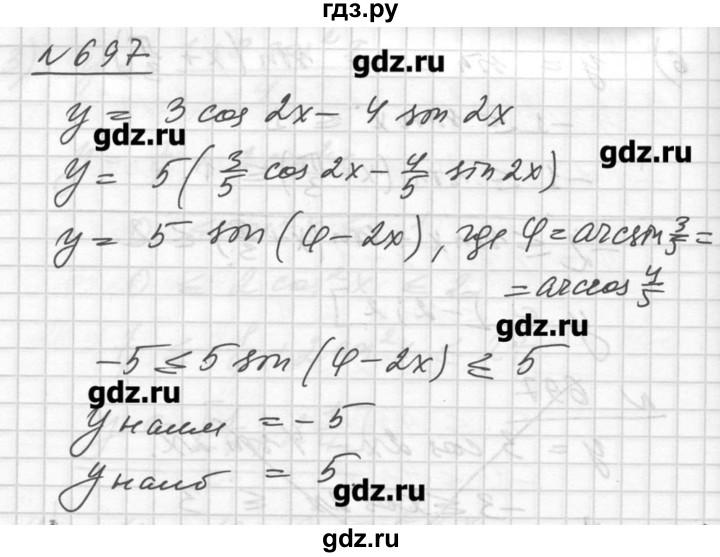 гдз.ру
№697
gdz.ru
y = 3 cos 2x - 4 sin 2x
gdz.ru
gdz.ru
y = 5 ( 3/5 cos 2x - 4/5 sin 2x )
y = 5 sin ( φ - 2x ) , где φ = arcsin 3/5 =
= arccos 4/5
gdz.ru
-5 ≤ 5 sin ( φ - 2x ) ≤ 5
gdz.ru
y наим = -5
y наиб = 5
gdz.ru
гдз.ру